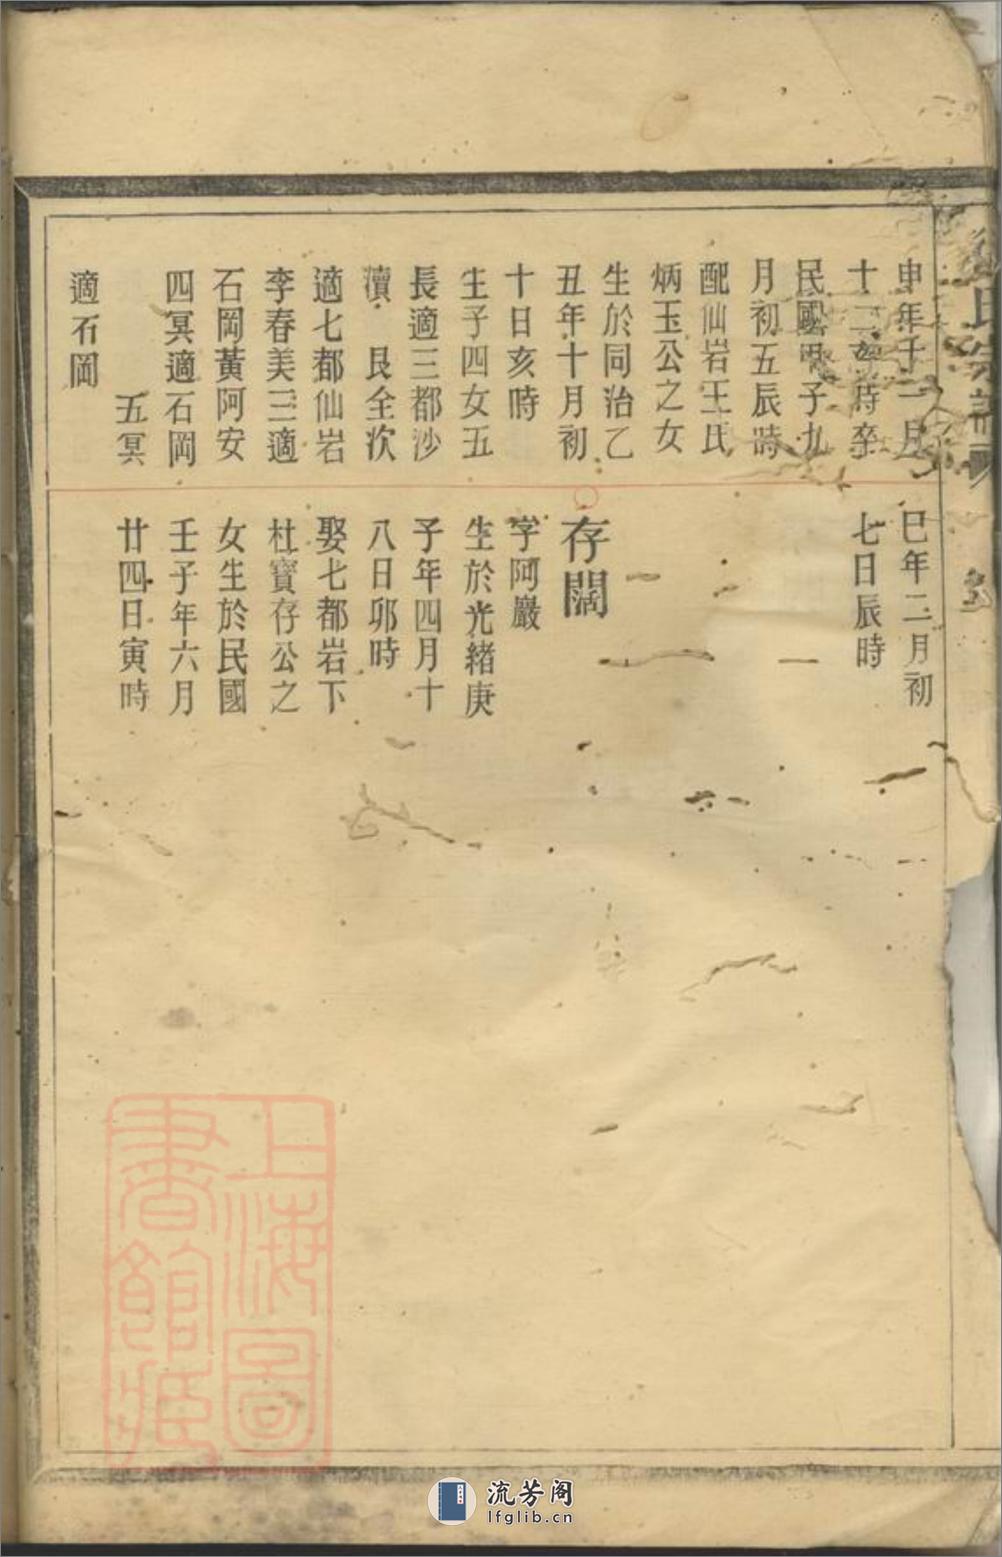 申年十一月
十二日卯時卒
民國甲子九
月初五辰時
配仙岩王氏
炳玉公之女
生於同治乙
丑年十月初
十日亥時
生子四女五
長適三都沙
瀆 艮全次
適七都仙岩
李春美三適
石岡黃阿安
四冥適石岡
五冥
適石岡
巳年二月初
七日辰時
存闊
字阿巖
生於光緒庚
子年四月十
八日卯時
娶七都岩下
杜寶存公之
女生於民國
壬子年六月
廿四日寅時
氏宗譜
上海圖
書館藏
流芳阁
lfglib.cn